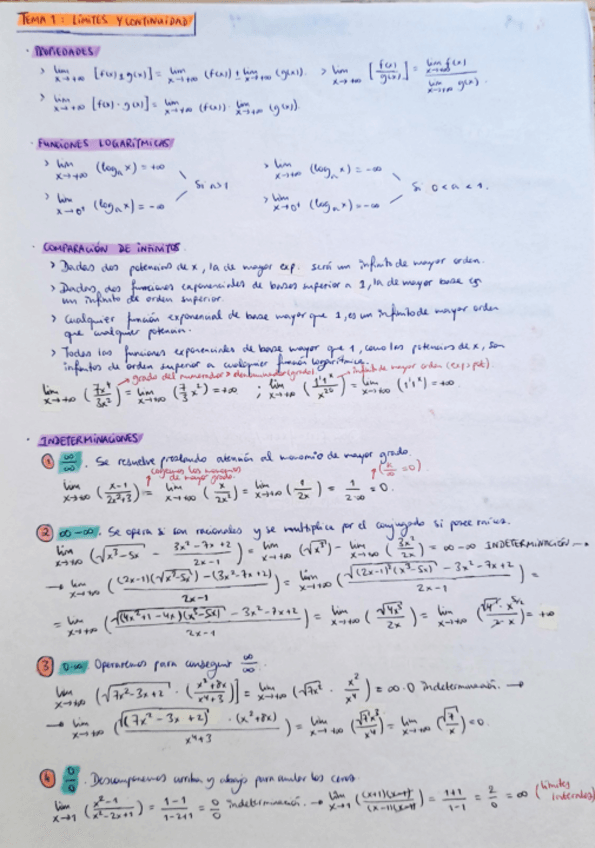 TEMA 1: LÍMITES Y CONTINUIDAD
· PROPIEDADES
> lim x→+∞ [f(x) ± g(x)] = lim x→+∞ (f(x)) ± lim x→+∞ (g(x)). > lim x→+∞ [f(x)/g(x)] = lim x→+∞ f(x) / lim x→+∞ g(x).
> lim x→+∞ [f(x) · g(x)] = lim x→+∞ (f(x)) · lim x→+∞ (g(x)).
· FUNCIONES LOGARÍTMICAS
> lim x→+∞ (logₐ x) = +∞ > lim x→+∞ (logₐ x) = -∞
Si a>1 Si 0<a<1.
> lim x→0⁺ (logₐ x) = -∞ > lim x→0⁺ (logₐ x) = -∞
· COMPARACIÓN DE INFINITOS
> Dadas dos potencias de x, la de mayor exp. será un infinito de mayor orden.
> Dadas, dos funciones exponenciales de bases superior a 1, la de mayor base es
un infinito de orden superior.
> Cualquier función exponencial de base mayor que 1, es un infinito de mayor orden
que cualquier potencia.
> Todas las funciones exponenciales de base mayor que 1, como las potencias de x, son
infinitos de orden superior a cualquier función logarítmica.
grado del numerador > denominador (grado). infinito de mayor orden (exp>pot)
lim x→+∞ (7x⁴/3x²) = lim x→+∞ (7/3 x²) = +∞ ; lim x→+∞ (1'1ˣ/x²⁰) = lim x→+∞ (1'1ˣ) = +∞.
· INDETERMINACIONES
1 ∞/∞. Se resuelve prestando atención al monomio de mayor grado.
cogemos los monomios de mayor grado. (x/∞ = 0).
lim x→+∞ (x-1/2x²+3) = lim x→+∞ (x/2x²) = lim x→+∞ (1/2x) = 1/2·∞ = 0.
2 ∞-∞. Se opera si son racionales y se multiplica por el conjugado si posee raíces.
lim x→+∞ (√x³-5x - 3x²-7x+2/2x-1) = lim x→+∞ (√x³) - lim x→+∞ (3x²/2x) = ∞-∞ INDETERMINACIÓN →
→ lim x→+∞ ((2x-1)(√x³-5x) - (3x²-7x+2)/2x-1) = lim x→+∞ (√(2x-1)²(x³-5x) - 3x²-7x+2/2x-1) =
= lim x→+∞ (√(4x²+1-4x)(x³-5x) - 3x²-7x+2/2x-1) = lim x→+∞ (√4x⁵/2x) = lim x→+∞ (√4 · x^5/2/2·x) = +∞
3 0·∞ Operaremos para conseguir ∞/∞.
lim x→+∞ [√7x²-3x+2 · (x²+8x/x⁴+3)] = lim x→+∞ (√7x² · x²/x⁴) = ∞·0 indeterminación. →
→ lim x→+∞ (√(7x²-3x+2) · (x²+8x)/x⁴+3) = lim x→+∞ (√7x³/x⁴) = lim x→+∞ (√7/x) = 0.
4 0/0. Descomponemos arriba y abajo para anular los ceros.
lim x→1 (x²-1/x²-2x+1) = 1-1/1-2+1 = 0/0 indeterminación. → lim x→1 (x+1)(x-1)/(x-1)(x-1) = 1+1/1-1 = 2/0 = ∞ (Límites laterales)